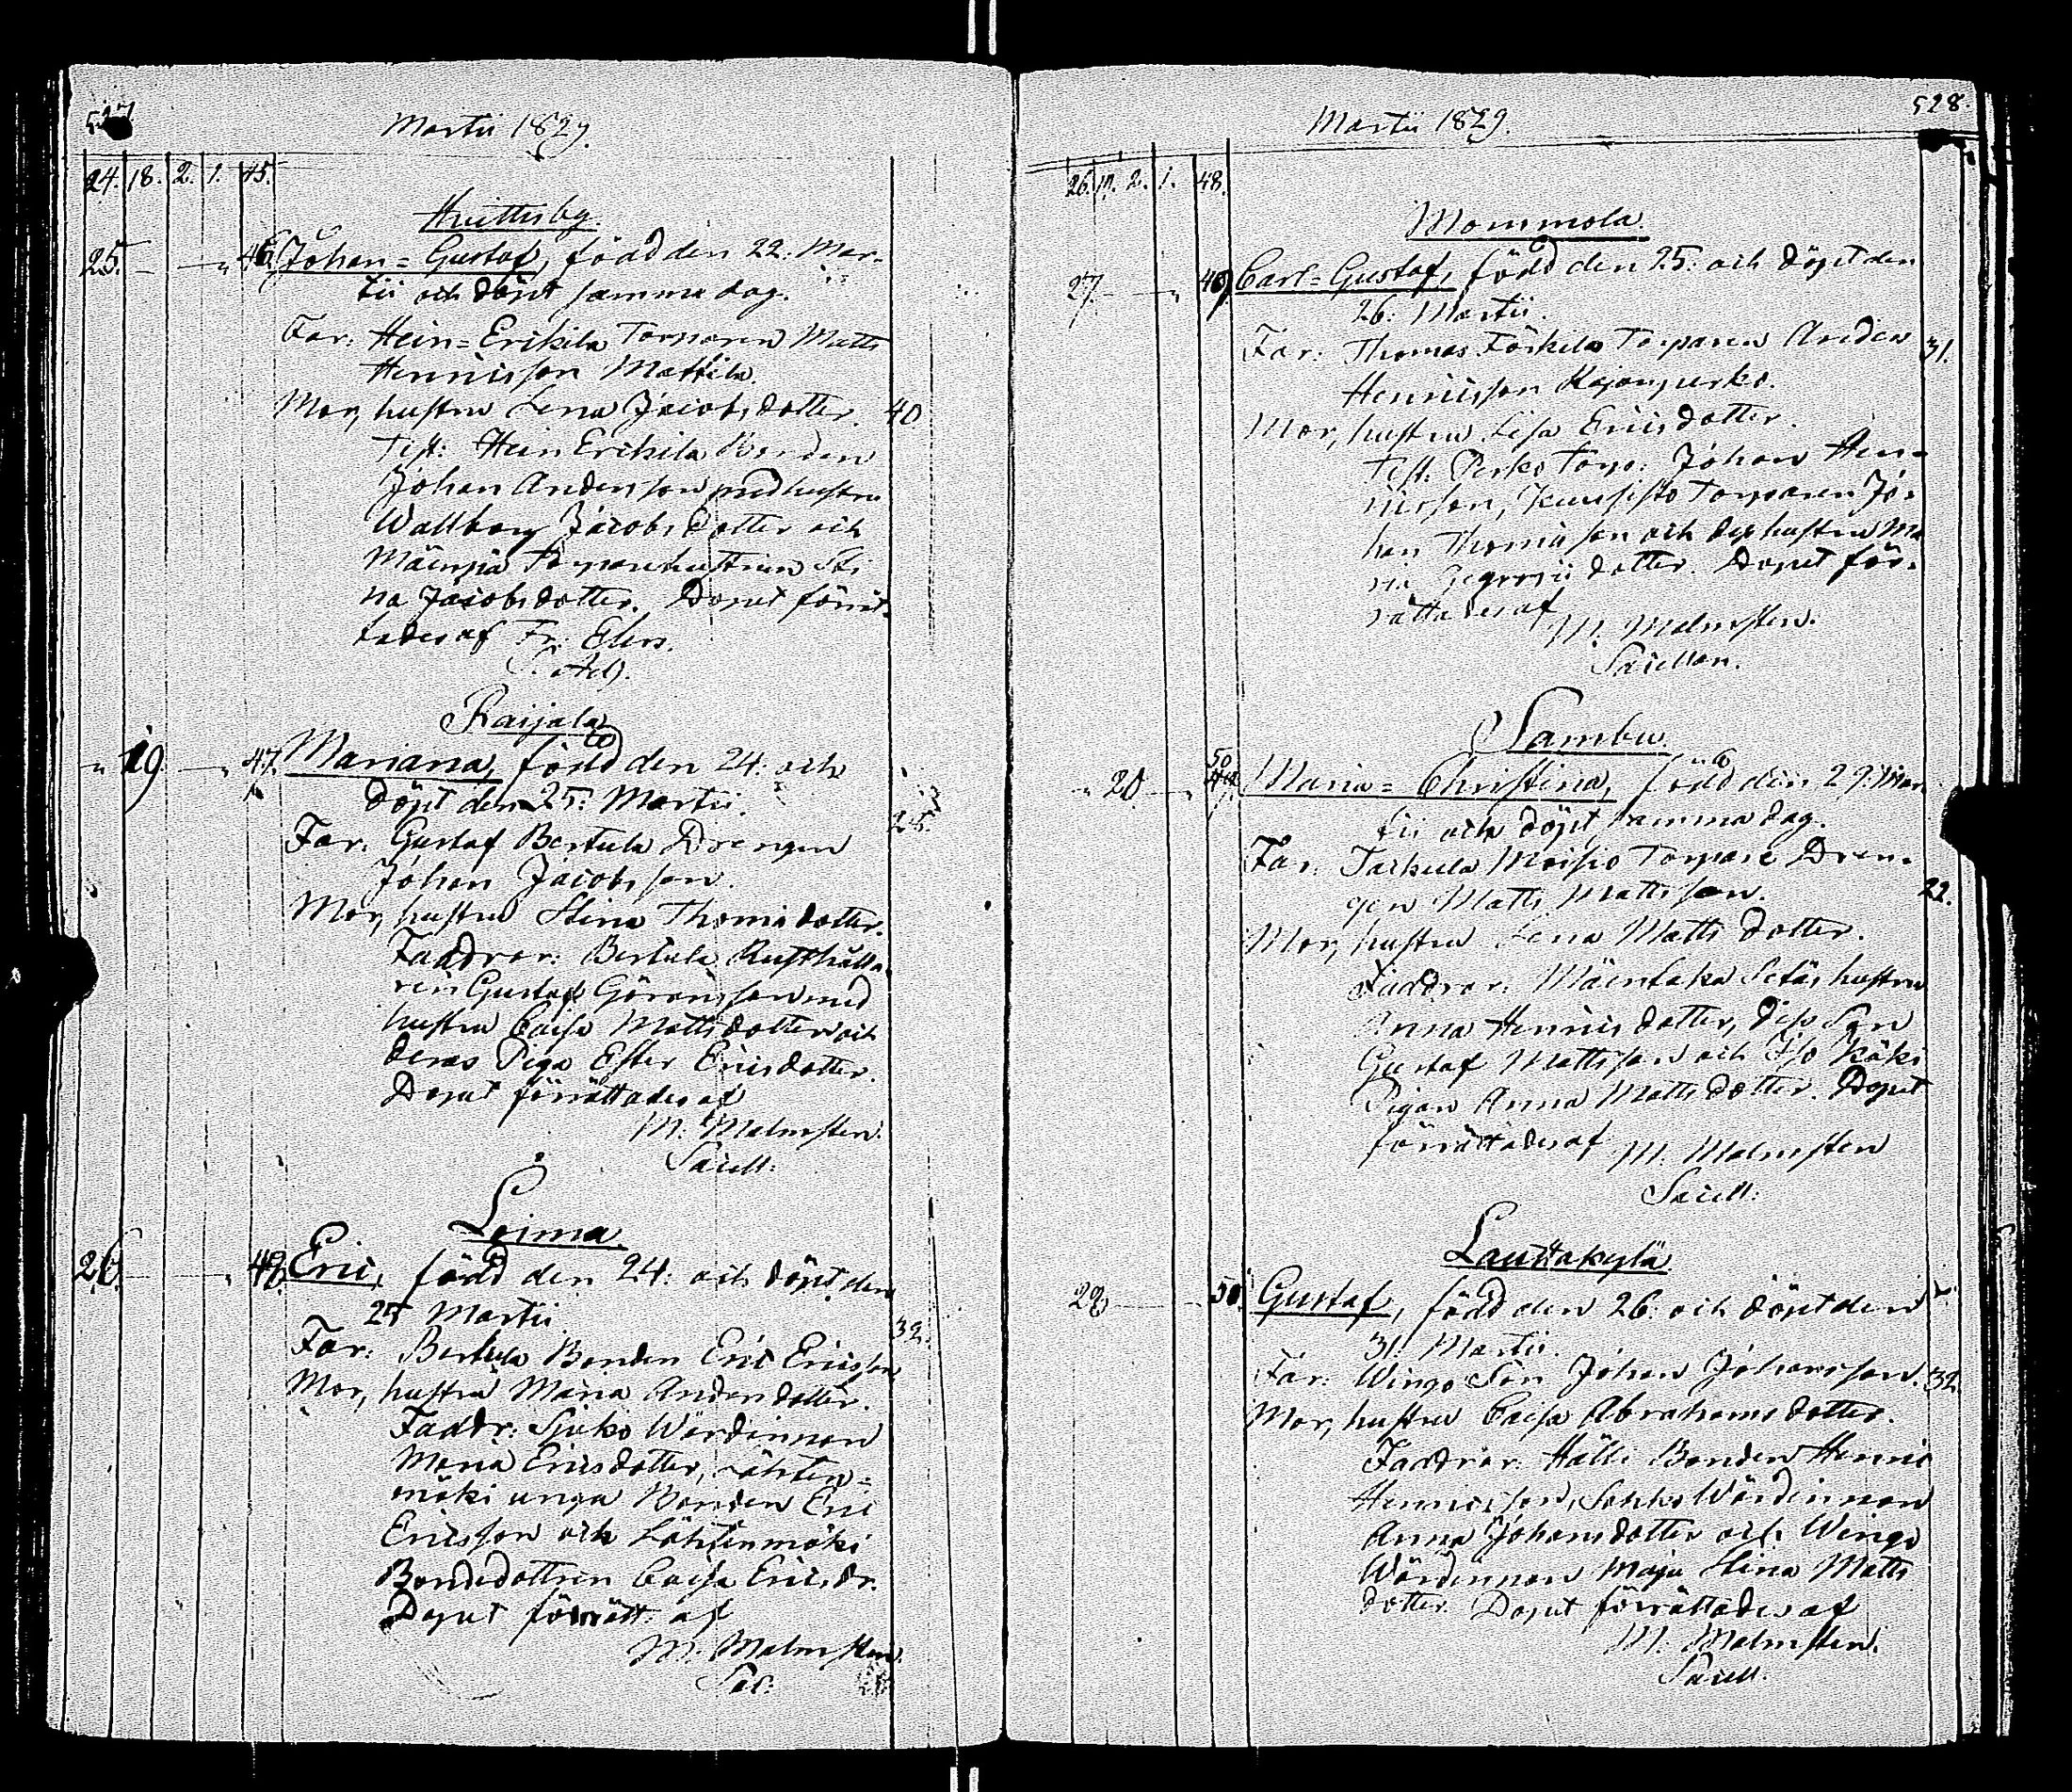 527
Martii 1829.
24. 18. 2. 1. 45.
Huittisby.
25. 46. Johan=Gustaf, född den 22. Mar-
tii och döpt samma dag.
Far: Hein=Erikila Torparen Matts
Henricsson Mattila.
Mor, hustru Lena Jacobsdotter. 40
Test: Hein Erikila Bonden
Johan Andersson med hustru
Wallborg Jacobsdotter och
Mäenpää Torparehustrun Sti
na Jacobsdotter. Dopet förrät-
tades af Fr: Elers.
Raijala
19. 47. Mariana, född den 24. och
döpt den 25: Martii.
Far: Gustaf Bertula Drengen
Johan Jacobsson.
Mor, hustru Stina Thomædotter.
Faddrar: Bertula Rusthålla-
ren Gustaf Göransson med
hustru Caisa Mattsdotter och
deras Piga Ester Ericsdotter.
Dopet förrättades af
M. Malmsten.
Sacell:
Loima.
26. 48. Eric, född den 24: och döpt den
25 Martii.
32.
Far: Bertula Bonden Eric Ericsson
Mor, hustru Maria Andersdotter.
Faddr: Sjuko Wärdinnan
Maria Ericsdotter, Lähten=
mäki unga Bonden Eric
Ericsson och Lähtenmäki
Bondedottren Caisa Ericsdr.
Dopet förrätt: af
M. Malmsten.
Sac.
528.
Martii 1829.
26. 19. 2. 1. 48.
Mommola.
27. 49. Carl=Gustaf, född den 25: och döpt den
26: Martii.
Far: Thomas Torparen Anders 31.
Henricsson
Mor, hustru Lisa Ericsdotter.
Test: Perko Torp: Johan Hen-
ricsson, Torparen Jo-
han Thomasson och dess hustru Ma
ria dotter. Dopet för-
rättades af
M. Malmsten.
Sacellan.
Sambu.
20 50 Maria=Christina, född den 29. Mar
tii och döpt samma dag.
Far: Moisio Torpare Dren-
gen Matts Mattsson. 22.
Mor, hustru Lena Mattsdotter.
Faddrar: hustru
Anna Henricsdotter, dess Son
Gustaf Mattsson och Iso Käki
Pigan Anna Mattsdotter. Dopet
förrättades af M. Malmsten
Sacell:
Lauttakylä.
28 50. Gustaf, född den 26: och döpt den
31. Martii.
Far: Wingo Son Johan Johansson. 32.
Mor, hustru Caisa Abrahamsdotter.
Faddrar: Hälli Bonden Henric
Henricsson, Wärdinnan
Anna Johansdotter och Wingo
Wärdinnan Maja Stina Matts
dotter. Dopet förrättades af
M. Malmsten.
Sacell.